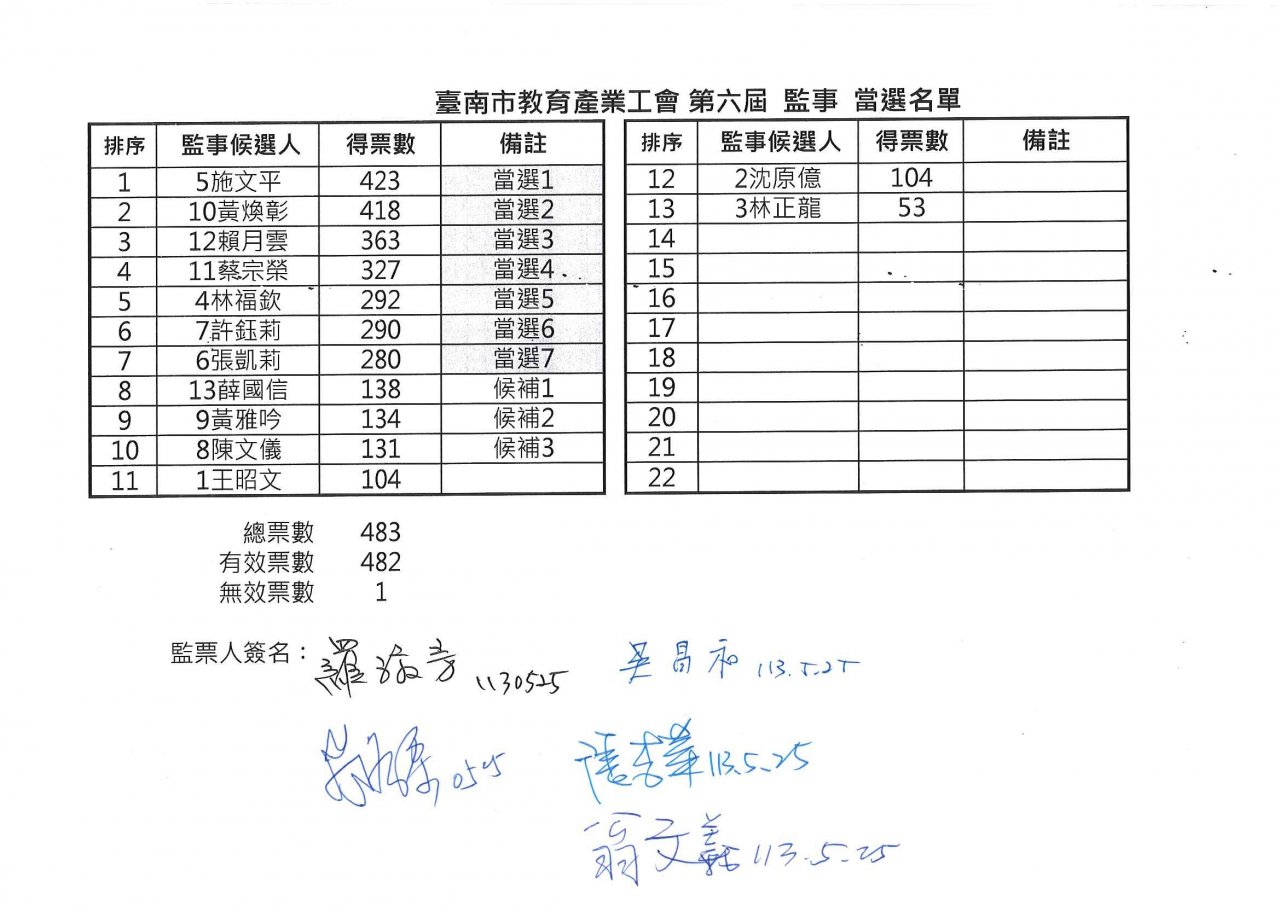 臺南市教育產業工會 第六屆 監事 當選名單
排序 監事候選人 得票數 備註
1 5施文平 423 當選1
2 10黃煥彰 418 當選2
3 12賴月雲 363 當選3
4 11蔡宗榮 327 當選4
5 4林福欽 292 當選5
6 7許鈺莉 290 當選6
7 6張凱莉 280 當選7
8 13薛國信 138 候補1
9 9黃雅吟 134 候補2
10 8陳文儀 131 候補3
11 1王昭文 104
排序 監事候選人 得票數 備註
12 2沈原億 104
13 3林正龍 53
14
15
16
17
18
19
20
21
22
總票數 483
有效票數 482
無效票數 1
監票人簽名：
羅 1130525
吳昌和 113.5.25
0525
113.5.25
翁文義 113.5.25